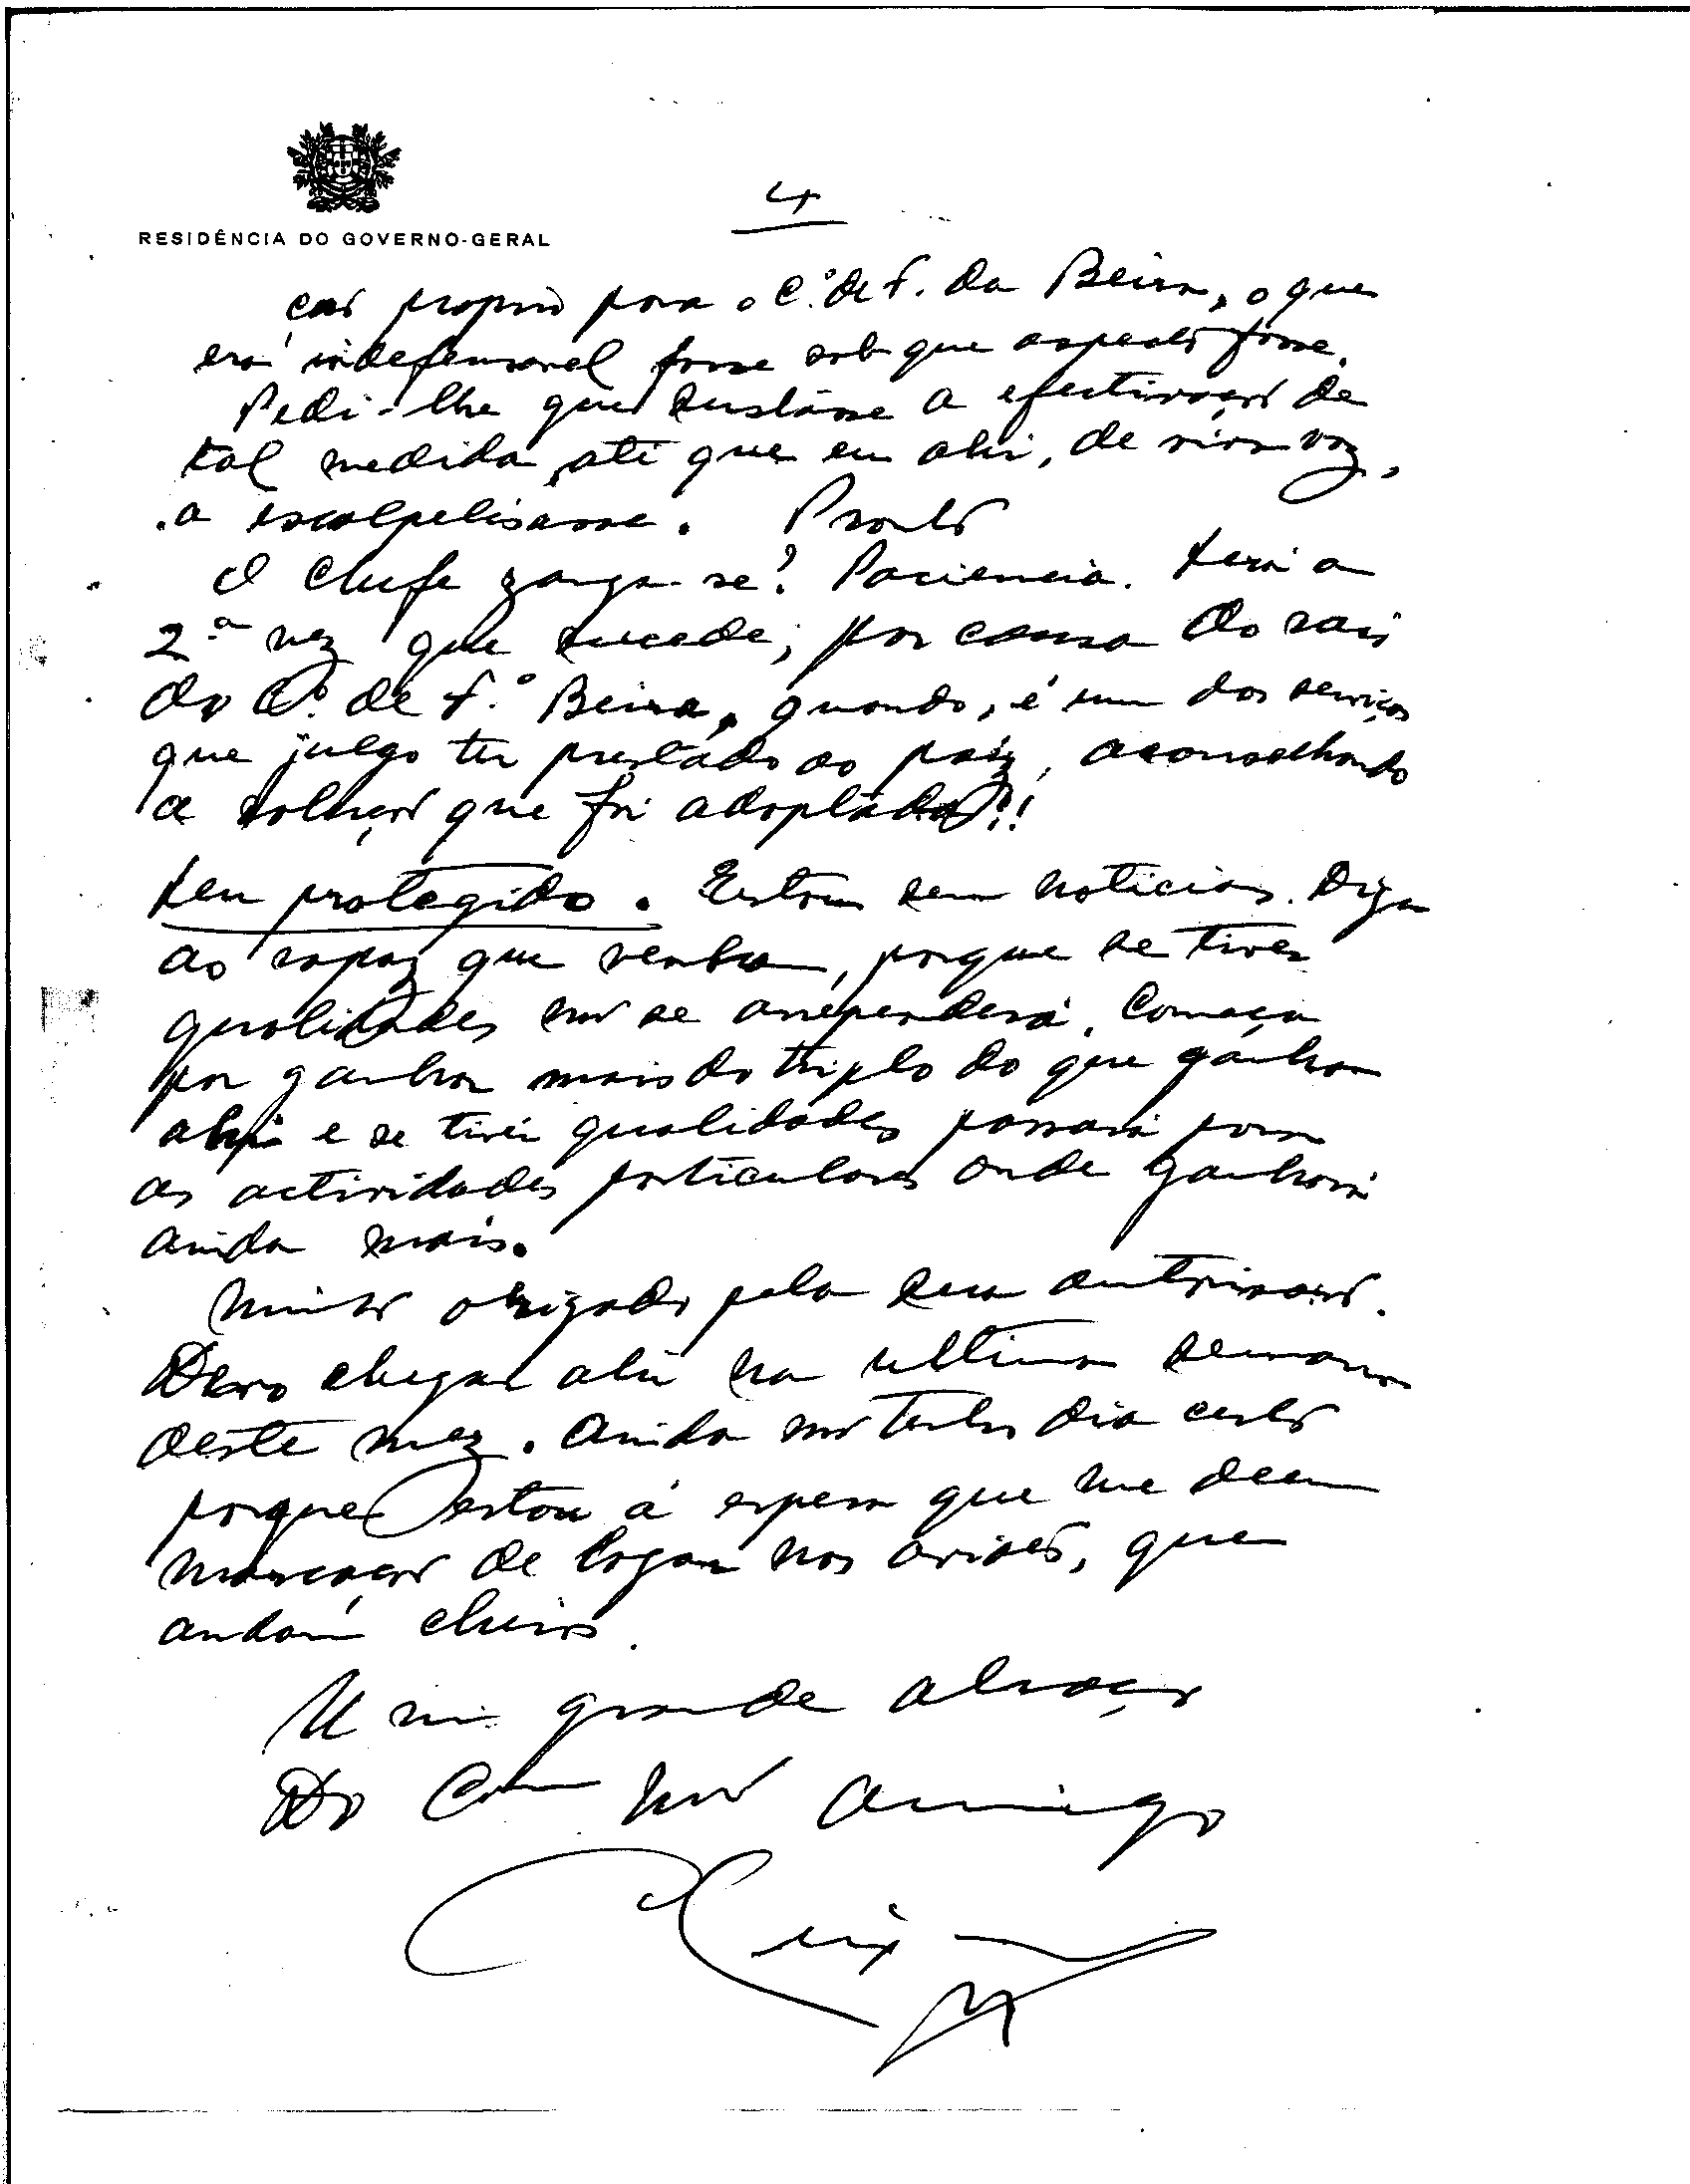 4
RESIDÊNCIA DO GOVERNO-GERAL
ção proprio para o C.º de F. da Beira, o que
era indefensavel fosse sob que aspecto fosse.
Pedi-lhe que sustásse a efectivação de
tal medida, até que eu ahi, de viva voz,
a escalpelisasse. Pronto
O Chefe zanga-se? Paciencia. Será a
2.ª vez que sucede, por causa do
do C.º de F.º Beira, quando, é um dos serviços
que julgo ter prestado ao paiz, aconselhando
a solução que foi adoptada!!
Seu protegido. Estou sem noticias. Diga
ao rapaz que venha, porque se tiver
qualidades não se arrependerá. Começa
por ganhar mais do triplo do que ganha
ahi e se tiver qualidades passará para
as actividades particulares onde ganhará
ainda mais.
Muito obrigado pela sua autorisação.
Devo chegar ahi na ultima semana
deste mez. Ainda não tenho dia certo
porque estou á espera que me deem
marcação de logar nos aviões, que
andam cheios.
Um grande abraço
Do amigo